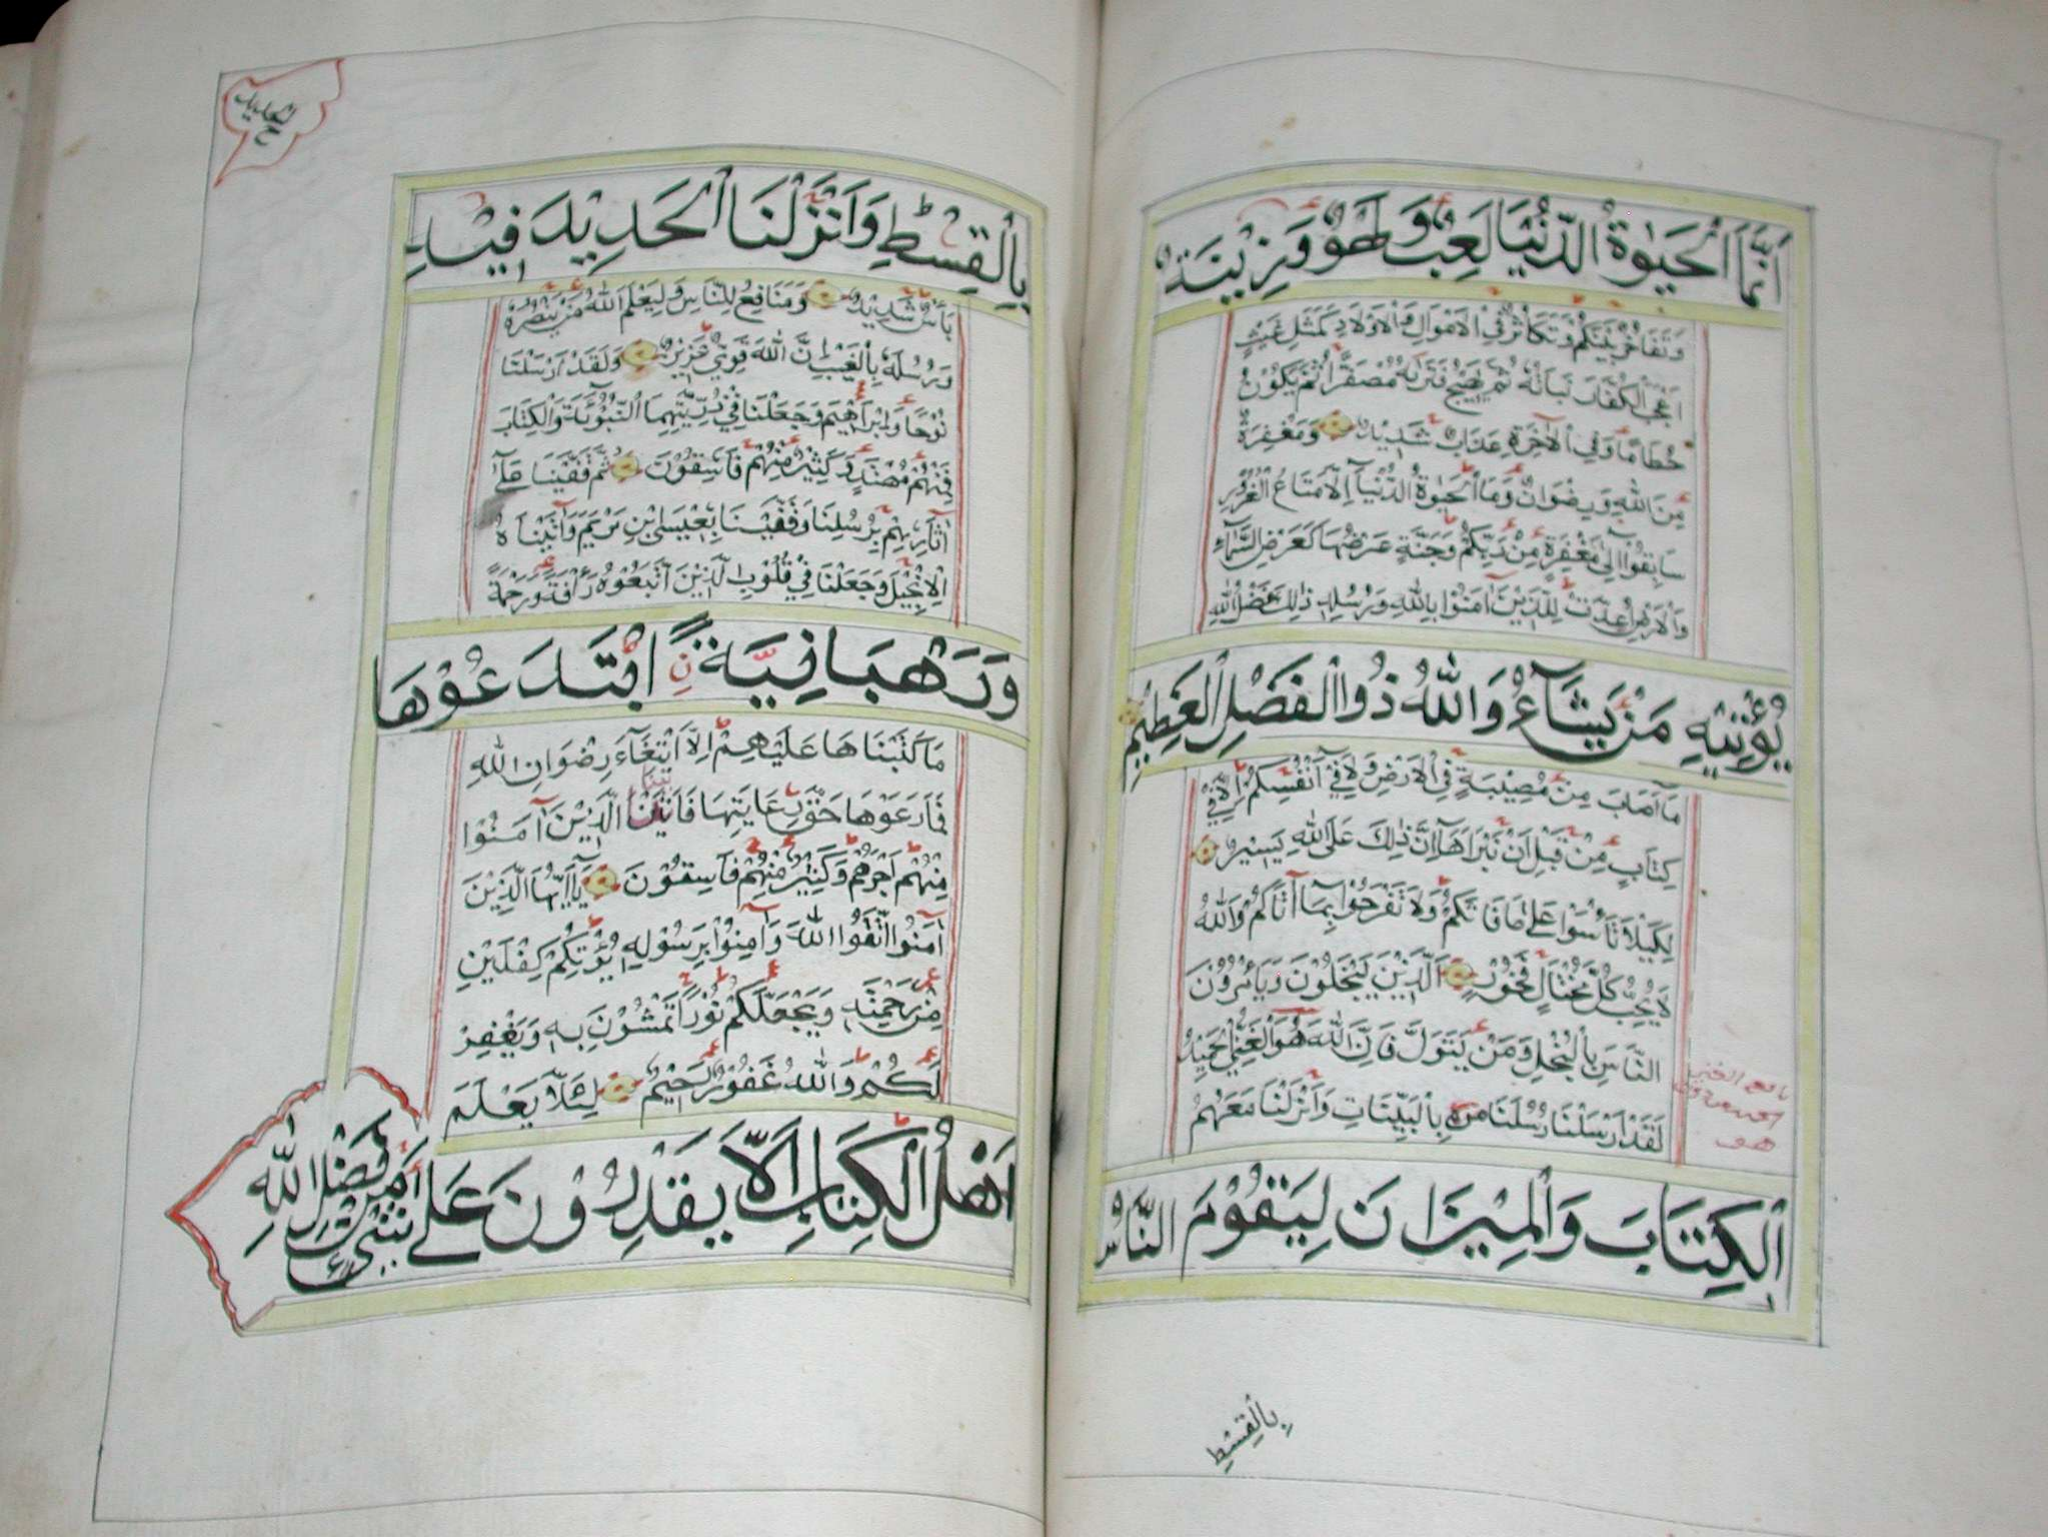 اَنَّمَا الْحَيٰوةُ الدُّنْيَا لَعِبٌ وَلَهْوٌ وَزِيْنَةٌ
وَتَفَاخُرٌ بَيْنَكُمْ وَتَكَاثُرٌ فِي الْاَمْوَالِ وَالْاَوْلَادِ كَمَثَلِ غَيْثٍ
اَعْجَبَ الْكُفَّارَ نَبَاتُهُ ثُمَّ يَهِيْجُ فَتَرَاهُ مُصْفَرًّا ثُمَّ يَكُوْنُ
حُطَامًا وَفِي الْاٰخِرَةِ عَذَابٌ شَدِيْدٌ وَمَغْفِرَةٌ
مِنَ اللّٰهِ وَرِضْوَانٌ وَمَا الْحَيٰوةُ الدُّنْيَآ اِلَّا مَتَاعُ الْغُرُوْرِ
سَابِقُوْٓا اِلٰى مَغْفِرَةٍ مِنْ رَبِّكُمْ وَجَنَّةٍ عَرْضُهَا كَعَرْضِ السَّمَآءِ
وَالْاَرْضِ اُعِدَّتْ لِلَّذِيْنَ اٰمَنُوْا بِاللّٰهِ وَرُسُلِهِ ذٰلِكَ فَضْلُ اللّٰهِ
يُؤْتِيْهِ مَنْ يَشَآءُ وَاللّٰهُ ذُو الْفَضْلِ الْعَظِيْمِ
مَآ اَصَابَ مِنْ مُصِيْبَةٍ فِي الْاَرْضِ وَلَا فِيْٓ اَنْفُسِكُمْ اِلَّا فِيْ
كِتَابٍ مِنْ قَبْلِ اَنْ نَبْرَاَهَا اِنَّ ذٰلِكَ عَلَى اللّٰهِ يَسِيْرٌ
لِكَيْلَا تَأْسَوْا عَلٰى مَا فَاتَكُمْ وَلَا تَفْرَحُوْا بِمَآ اٰتَاكُمْ وَاللّٰهُ
لَا يُحِبُّ كُلَّ مُخْتَالٍ فَخُوْرٍ الَّذِيْنَ يَبْخَلُوْنَ وَيَأْمُرُوْنَ
النَّاسَ بِالْبُخْلِ وَمَنْ يَتَوَلَّ فَاِنَّ اللّٰهَ هُوَ الْغَنِيُّ الْحَمِيْدُ
لَقَدْ اَرْسَلْنَا رُسُلَنَا بِالْبَيِّنَاتِ وَاَنْزَلْنَا مَعَهُمُ
الْكِتَابَ وَالْمِيْزَانَ لِيَقُوْمَ النَّاسُ
بِالْقِسْطِ
الحديد
بِالْقِسْطِ وَاَنْزَلْنَا الْحَدِيْدَ فِيْهِ
بَأْسٌ شَدِيْدٌ وَمَنَافِعُ لِلنَّاسِ وَلِيَعْلَمَ اللّٰهُ مَنْ يَنْصُرُهُ
وَرُسُلَهُ بِالْغَيْبِ اِنَّ اللّٰهَ قَوِيٌّ عَزِيْزٌ وَلَقَدْ اَرْسَلْنَا
نُوْحًا وَاِبْرَاهِيْمَ وَجَعَلْنَا فِيْ ذُرِّيَّتِهِمَا النُّبُوَّةَ وَالْكِتَابَ
فَمِنْهُمْ مُهْتَدٍ وَكَثِيْرٌ مِنْهُمْ فَاسِقُوْنَ ثُمَّ قَفَّيْنَا عَلٰٓى
اٰثَارِهِمْ بِرُسُلِنَا وَقَفَّيْنَا بِعِيْسَى ابْنِ مَرْيَمَ وَاٰتَيْنَاهُ
الْاِنْجِيْلَ وَجَعَلْنَا فِيْ قُلُوْبِ الَّذِيْنَ اتَّبَعُوْهُ رَأْفَةً وَرَحْمَةً
وَرَهْبَانِيَّةً ابْتَدَعُوْهَا
مَا كَتَبْنَاهَا عَلَيْهِمْ اِلَّا ابْتِغَآءَ رِضْوَانِ اللّٰهِ
فَمَا رَعَوْهَا حَقَّ رِعَايَتِهَا فَاٰتَيْنَا الَّذِيْنَ اٰمَنُوْا
مِنْهُمْ اَجْرَهُمْ وَكَثِيْرٌ مِنْهُمْ فَاسِقُوْنَ يَآ اَيُّهَا الَّذِيْنَ
اٰمَنُوا اتَّقُوا اللّٰهَ وَاٰمِنُوْا بِرَسُوْلِهِ يُؤْتِكُمْ كِفْلَيْنِ
مِنْ رَحْمَتِهِ وَيَجْعَلْ لَكُمْ نُوْرًا تَمْشُوْنَ بِهِ وَيَغْفِرْ
لَكُمْ وَاللّٰهُ غَفُوْرٌ رَحِيْمٌ لِئَلَّا يَعْلَمَ
اَهْلُ الْكِتَابِ اَلَّا يَقْدِرُوْنَ عَلٰى شَيْءٍ مِنْ فَضْلِ اللّٰهِ